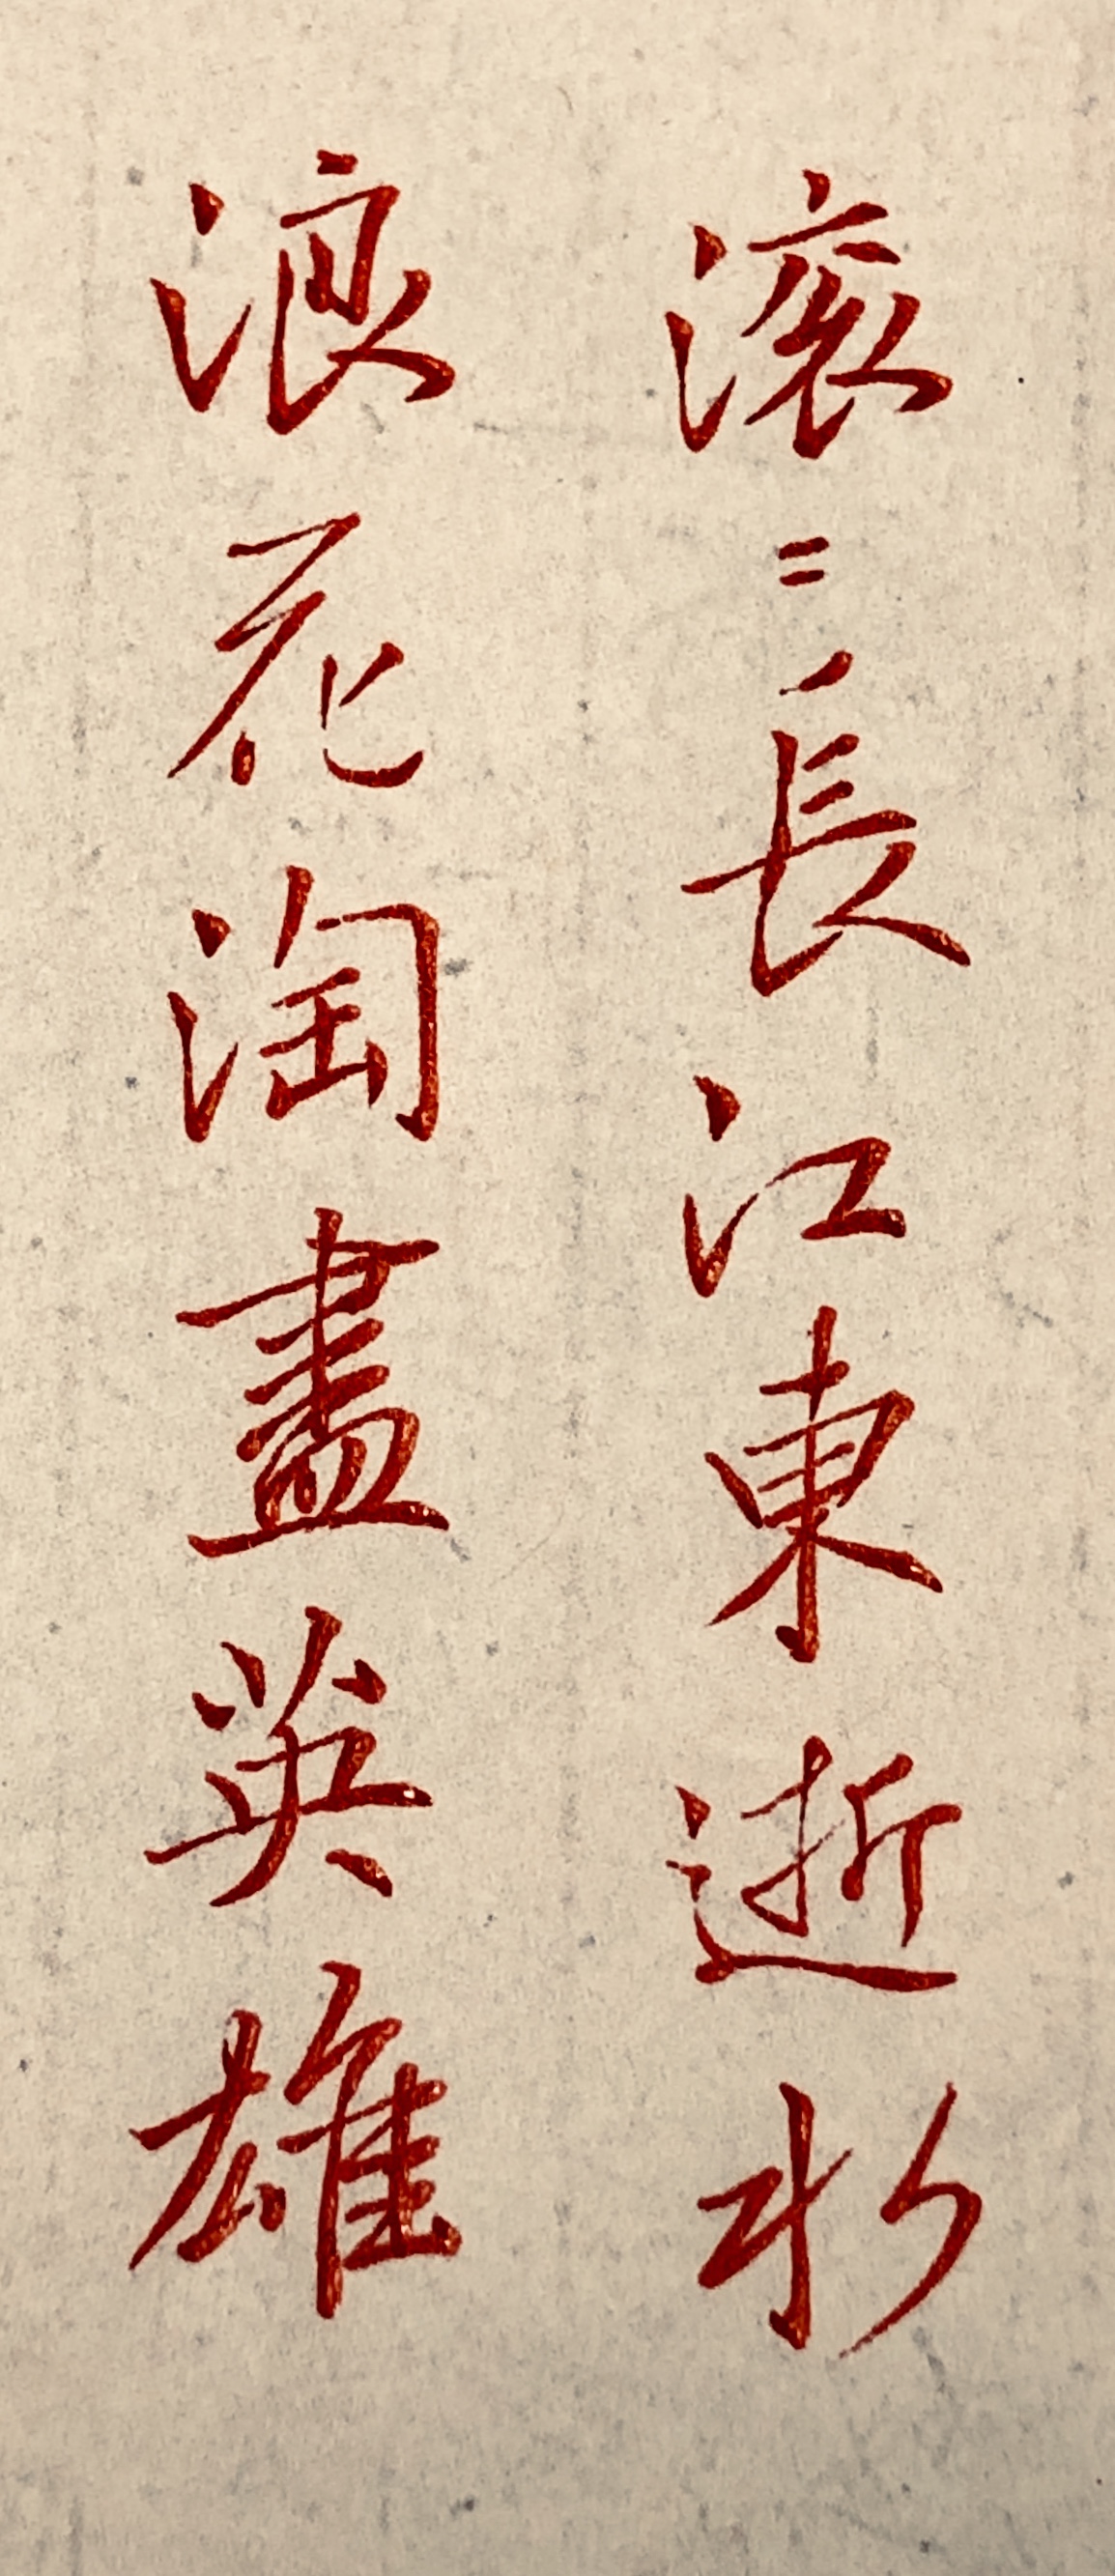 滚〻長江東逝水
浪花淘盡英雄